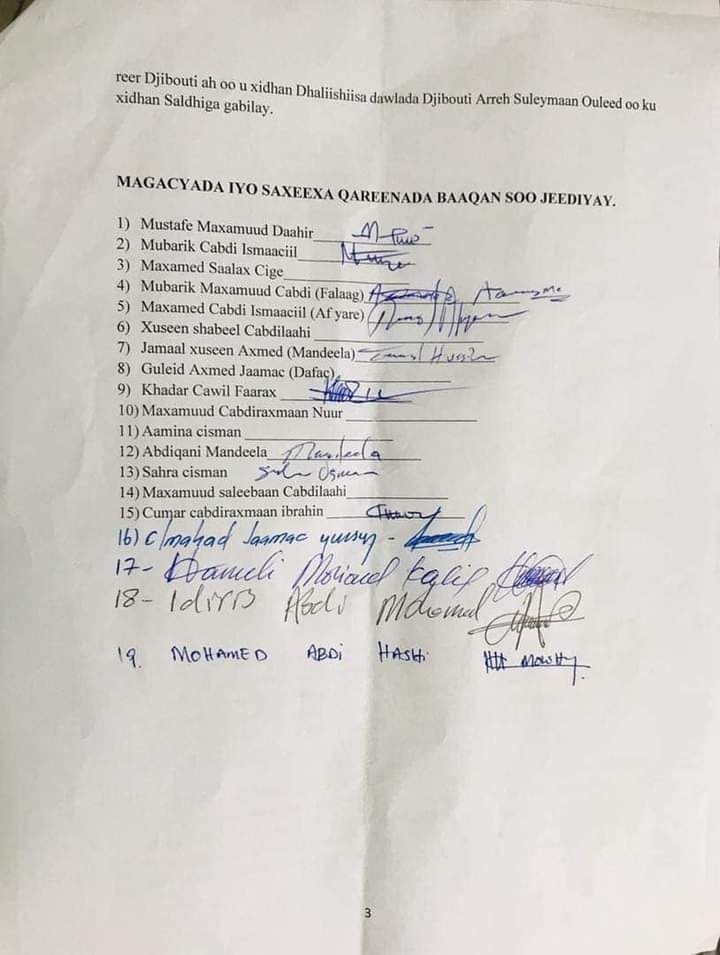 reer Djibouti ah oo u xidhan Dhaliishiisa dawlada Djibouti Arreh Suleymaan Ouleed oo ku
xidhan Saldhiga gabilay.
MAGACYADA IYO SAXEEXA QAREENADA BAAQAN SOO JEEDIYAY.
1) Mustafe Maxamuud Daahir
2) Mubarik Cabdi Ismaaciil
3) Maxamed Saalax Cige
4) Mubarik Maxamuud Cabdi (Falaag)
5) Maxamed Cabdi Ismaaciil (Af yare)
6) Xuseen shabeel Cabdilaahi
7) Jamaal xuseen Axmed (Mandeela)
8) Guleid Axmed Jaamac (Dafac)
9) Khadar Cawil Faarax
10) Maxamuud Cabdiraxmaan Nuur
11) Aamina cisman
12) Abdiqani Mandeela Mandeela
13) Sahra cisman
14) Maxamuud saleebaan Cabdilaahi
15) Cumar cabdiraxmaan ibrahin
16) C/mahad Jaamac yuusuf -
17-
18- Idiris Abdi Mohamed
19. MOHAMED ABDi HASHi
3